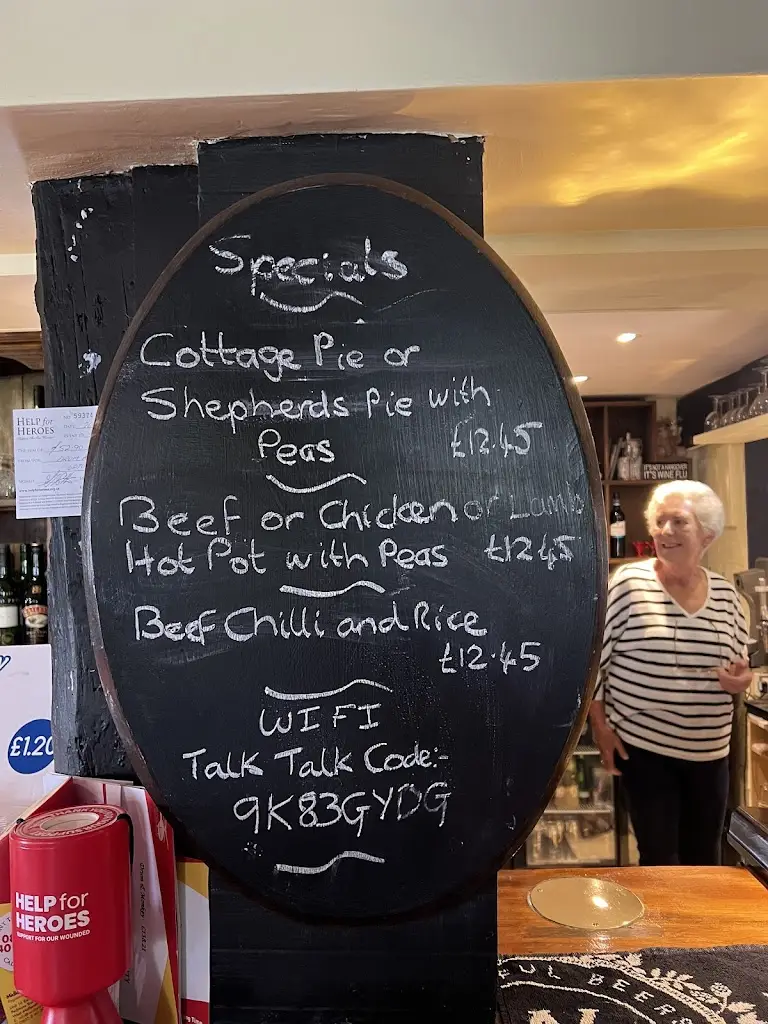 Specials
Cottage Pie or
Shepherds Pie with
Peas £12.45
Beef or Chicken or Lamb
Hot Pot with Peas £12.45
Beef Chilli and Rice
£12.45
WIFI
Talk Talk Code:-
9K83GYDG
HELP for
HEROES
£1.20
HELP for
HEROES
SUPPORT FOR OUR WOUNDED
IT'S NOT A HANGOVER
IT'S WINE FLU
BEERS